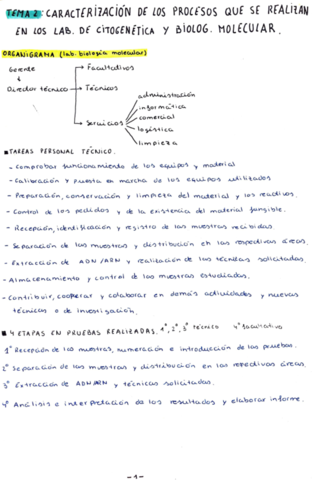 TEMA 2: CARACTERIZACIÓN DE LOS PROCESOS QUE SE REALIZAN
EN LOS LAB. DE CITOGENÉTICA Y BIOLOG. MOLECULAR.
ORGANIGRAMA (lab. biología molecular)
Gerente → Facultativos
↓
Director técnico → Técnicos
→ Servicios → administración
informática
comercial
logística
limpieza
■ TAREAS PERSONAL TÉCNICO.
- Comprobar funcionamiento de los equipos y material
- Calibración y puesta en marcha de los equipos utilizados
- Preparación, conservación y limpieza del material y los reactivos.
- Control de los pedidos y de la existencia del material fungible.
- Recepción, identificación y registro de las muestras recibidas
- Separación de las muestras y distribución en las respectivas áreas.
- Extracción de ADN/ARN y realización de las técnicas solicitadas.
- Almacenamiento y control de las muestras estudiadas.
- Contribuir, cooperar y colaborar en demás actividades y nuevas
técnicas o de investigación.
■ 4 ETAPAS EN PRUEBAS REALIZADAS. 1º, 2º, 3º técnico 4º facultativo
1º Recepción de las muestras, numeración e introducción de las pruebas.
2º Separación de las muestras y distribución en las respectivas áreas.
3º Extracción de ADN/ARN y técnicas solicitadas.
4º Análisis e interpretación de los resultados y elaborar informe.
-1-